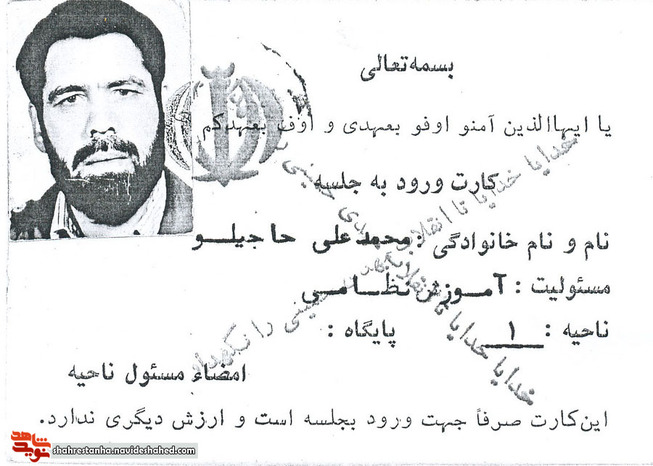 بسمه‌تعالی
یا ایهاالذین آمنو اوفو بعهدی و اوف بعهدکم
کارت ورود به جلسه
نام و نام خانوادگی : محمدعلی حاجیلو
مسئولیت : آموزش نظامی
ناحیه : ۱ پایگاه :
امضاء مسئول ناحیه
این‌کارت صرفاً جهت ورود بجلسه است و ارزش دیگری ندارد.
خدایا خدایا تا انقلاب مهدی خمینی را
خدایا خدایا تا انقلاب مهدی خمینی را نگهدار
شاهد
نوید
shahrestanha.navideshahed.com